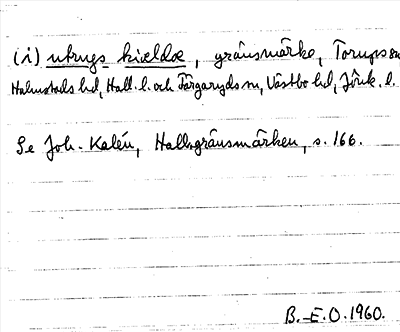 (i) utrygs kiældæ, gränsmärke, Torups sn
Halmstads hd, Hall. l. och Färgaryds sn, Västbo hd, Jönk. l.
Se Joh. Kalén, Hallsgränsmärken, s. 166.
B. E. O. 1960.